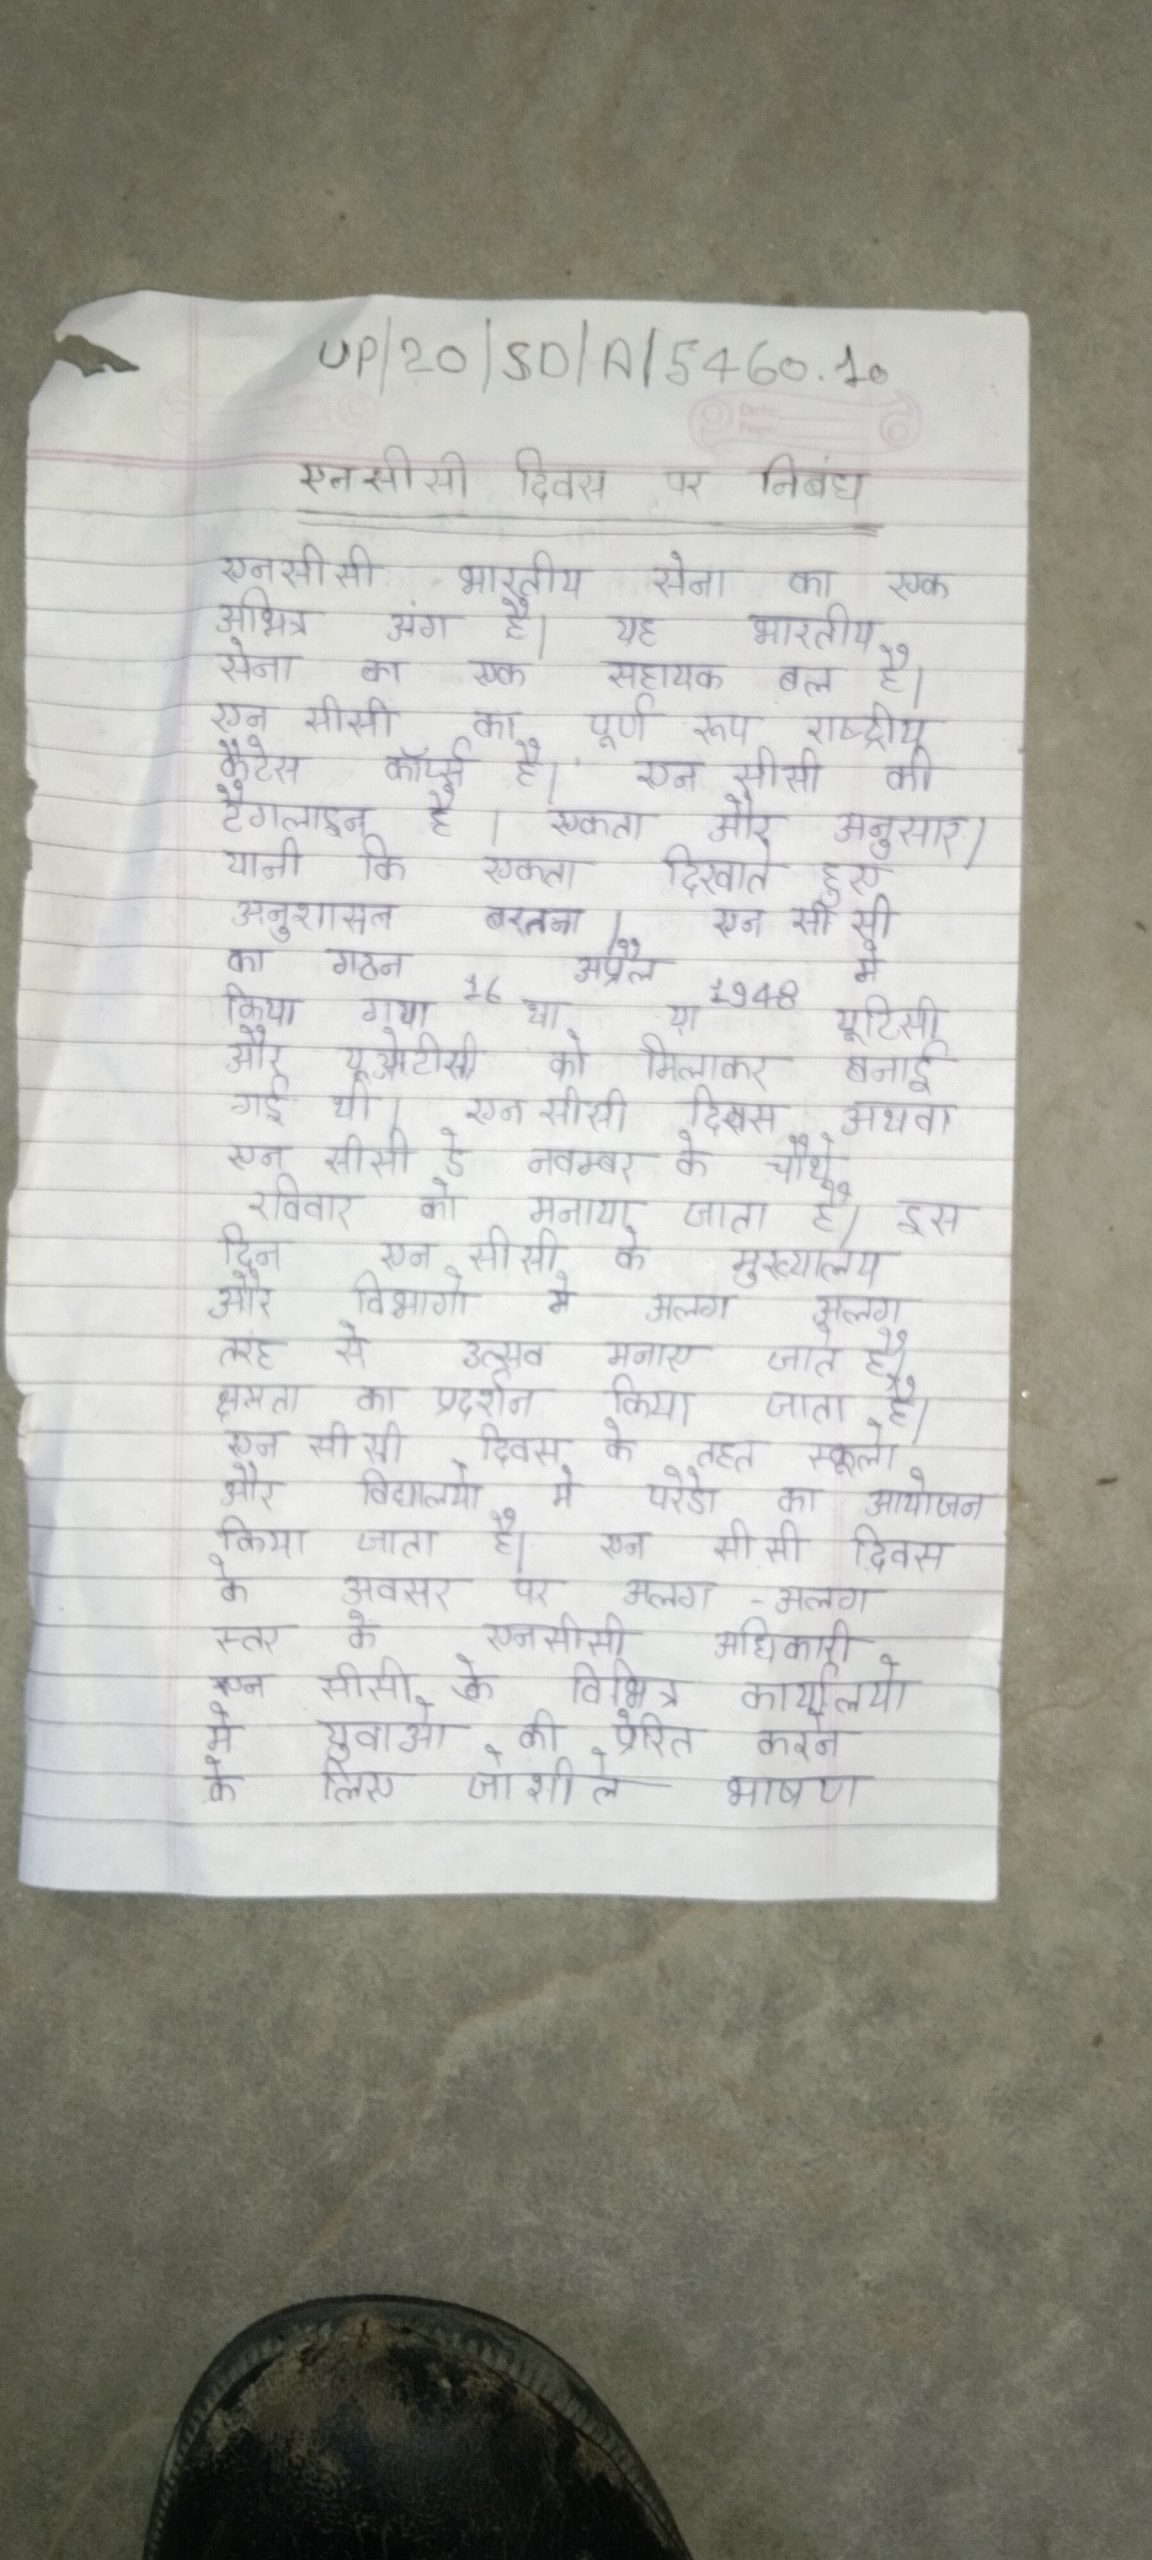 UP/20/SD/A/5460.10
एनसीसी दिवस पर निबंध
एनसीसी भारतीय सेना का एक
अभिन्न अंग है। यह भारतीय
सेना का एक सहायक बल है।
एन सीसी का पूर्ण रूप राष्ट्रीय
कैटेस कॉर्प्स है। एन सीसी की
टैगलाइन है। एकता और अनुसार।
यानी कि एकता दिखाते हुए
अनुशासन बरतना। एन सी सी
का गठन 16 अप्रैल 1948 में
किया गया था या यूटिसी
और यूओटीसी को मिलाकर बनाई
गई थी। एन सीसी दिवस अथवा
एन सीसी डे नवम्बर के चौथे
रविवार को मनाया जाता है। इस
दिन एन सीसी के मुख्यालय
और विभागो मे अलग अलग
तरह से उत्सव मनाए जाते है।
क्षमता का प्रदर्शन किया जाता है।
एन सीसी दिवस के तहत स्कूलो
और विद्यालयो मे परेडो का आयोजन
किया जाता है। एन सीसी दिवस
के अवसर पर अलग - अलग
स्तर के एनसीसी अधिकारी
एन सीसी के विभिन्न कार्यालयो
मे युवाओ की प्रेरित करने
के लिए जोशीले भाषण